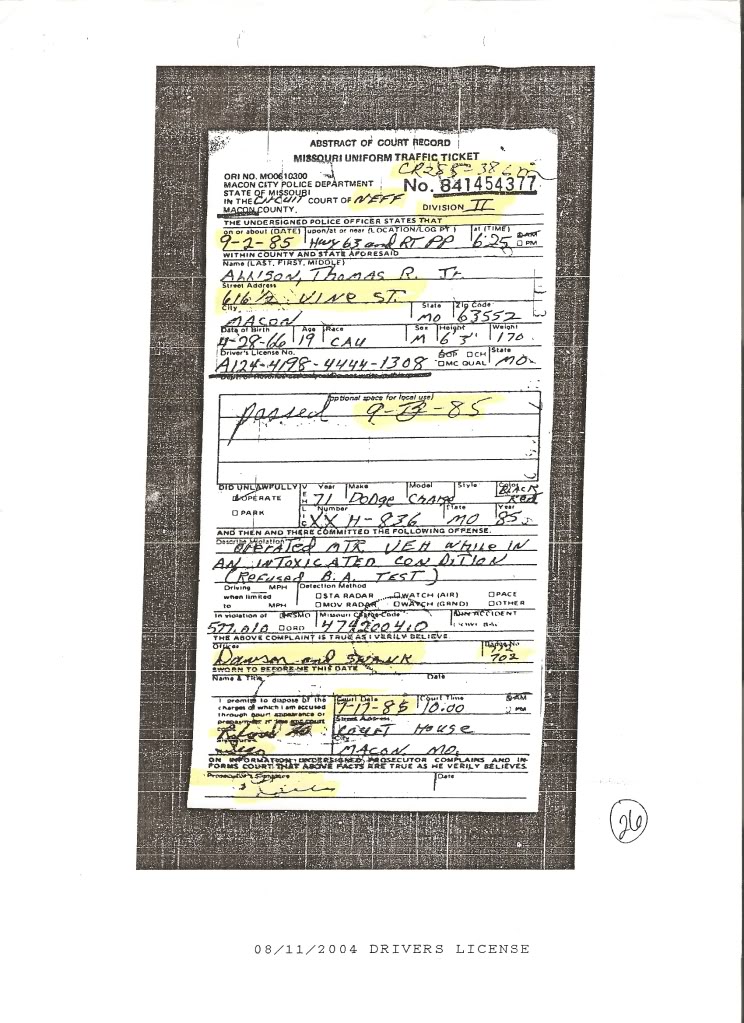 ABSTRACT OF COURT RECORD
MISSOURI UNIFORM TRAFFIC TICKET
ORI NO. MO0610300
MACON CITY POLICE DEPARTMENT No. 841454377
STATE OF MISSOURI
IN THE CIRCUIT COURT OF NEFF
MACON COUNTY. DIVISION II
THE UNDERSIGNED POLICE OFFICER STATES THAT
on or about (DATE) upon/at or near (LOCATION/LOG PT) at (TIME)
9-2-85 Hwy 63 and RT PP 6:25 AM PM
WITHIN COUNTY AND STATE AFORESAID
Name (LAST, FIRST, MIDDLE)
ALLISON, Thomas R. Jr
Street Address
616 1/2 VINE ST.
City State Zip Code
MACON MO 63552
Date of Birth Age Race Sex Height Weight
4-28-66 19 CAU M 6'3" 170
Driver's License No. OP CH State
A124-4198-4444-1308 MC QUAL MO
(optional space for local use)
passed 9-13-85
DID UNLAWFULLY VEH Year Make Model Style Color
OPERATE 71 Dodge Charge BLACK Red
PARK LIC Number State Year
XXH-836 MO 85
AND THEN AND THERE COMMITTED THE FOLLOWING OFFENSE.
Describe Violation
operated MTR VEH WHILE IN
AN INTOXICATED CONDITION
(REFUSED B.A. TEST)
Driving MPH Detection Method
when limited STA RADAR WATCH (AIR) PACE
to MPH MOV RADAR WATCH (GRND) OTHER
In violation of RSMO Missouri Charge Code IN ACCIDENT
577.010 ORD 474200410
THE ABOVE COMPLAINT IS TRUE AS I VERILY BELIEVE
Officer Badge No.
Dawson and SWANK 702
SWORN TO BEFORE ME THIS DATE
Name & Title Date
I promise to dispose of the Court Date Court Time AM
charges of which I am accused 9-17-85 10:00 PM
through court appearance or Street Address
prepayment of fine and court
Refused to COURT House
Sign City
MACON MO.
ON INFORMATION UNDERSIGNED PROSECUTOR COMPLAINS AND IN-
FORMS COURT THAT ABOVE FACTS ARE TRUE AS HE VERILY BELIEVES.
Prosecutor's Signature Date
26
08/11/2004 DRIVERS LICENSE